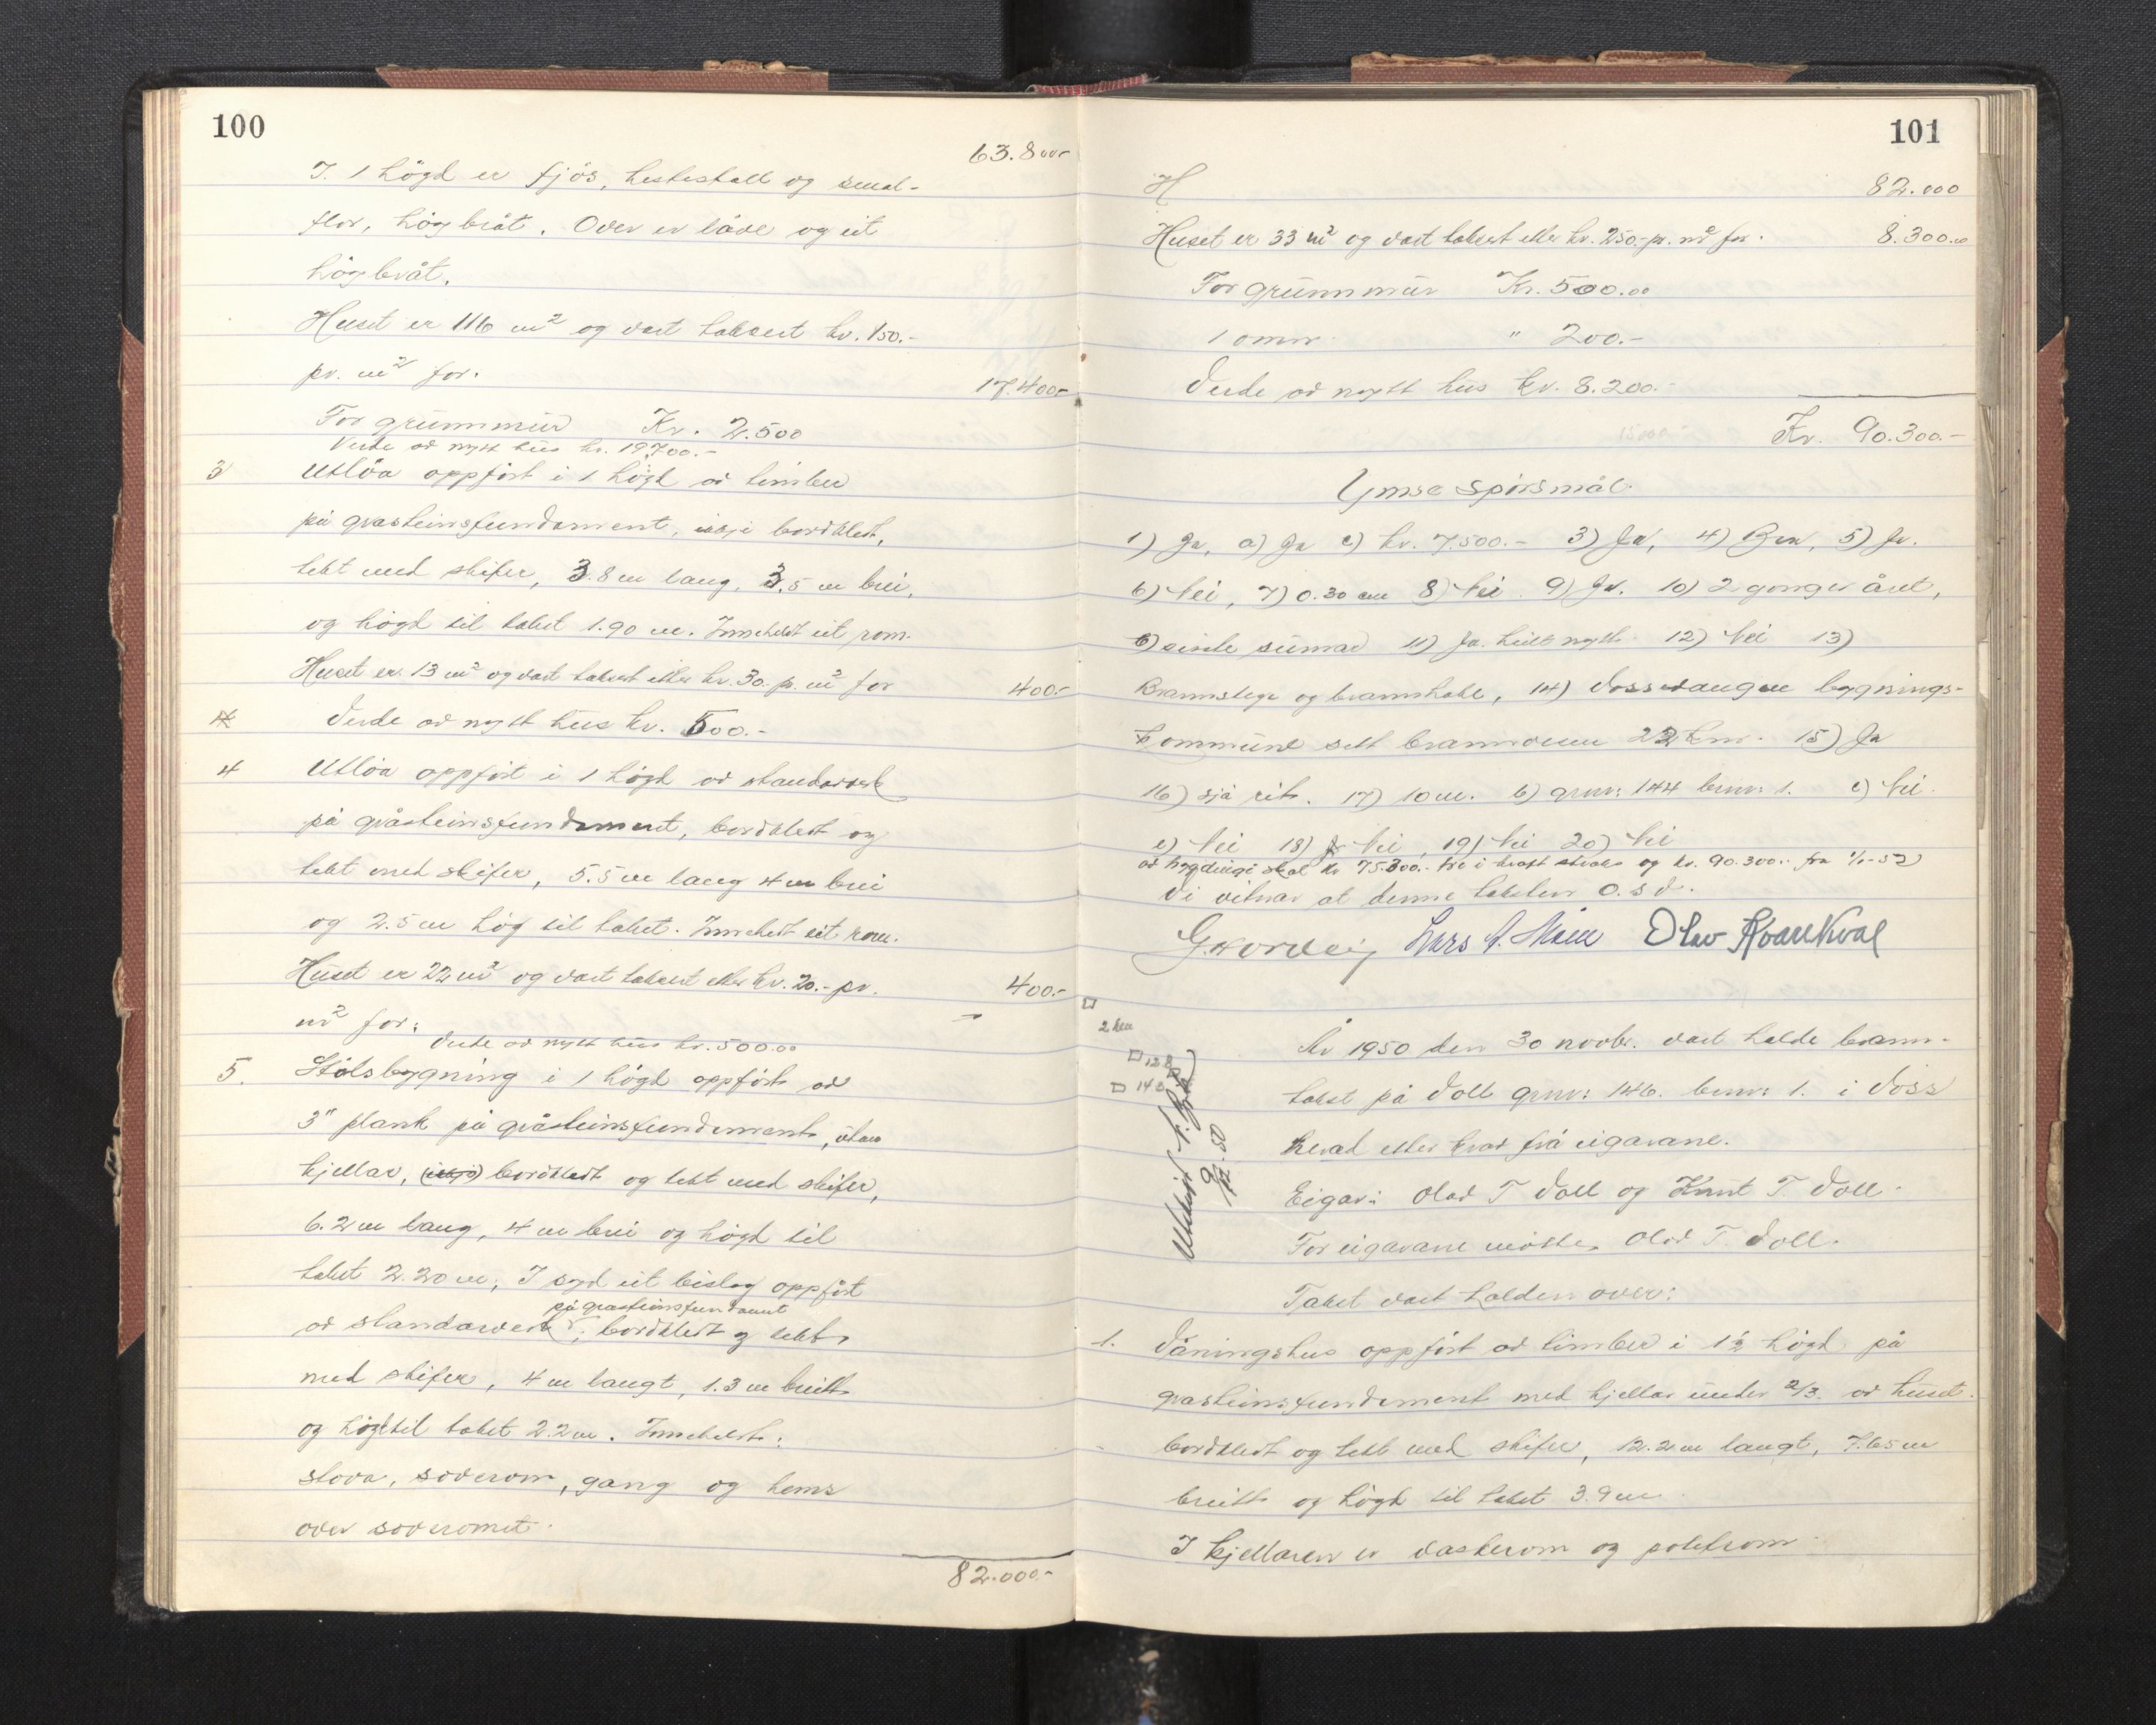 100
63.800-
I. 1 högd er fjös, hestestall og smal-
flor, högbråt. Over er låve og eit
högbråt.
Huset er 116 m² og vart taksert kr. 150.-
pr. m² for.
17.400-
For grunnmur Kr. 2.500
Verde av nytt hus kr. 19.700.-
3 Utlöa oppfört i 1 högd av timber
på grasteinsfundament, ikkje bordkledt,
tekt med skifer, 3.8 m lang, 3.5 m brei,
og högd til taket 1.90 m. Inneheldt eit rom.
Huset er 13 m² og vart taksert etter kr. 30.- pr. m² for
400.-
Verde av nytt hus kr. 500.-
4 Utlöa oppfört i 1 högd av standarverk
på gråsteinsfundament, bordkledt og
tekt med skifer, 5.5 m lang 4 m brei
og 2.5 m hög til taket. Inneheldt eit rom.
Huset er 22 m² og vart taksert etter kr. 20.- pr.
400.-
m² for:
Verde av nytt hus kr. 500.00
5. Stölsbygning i 1 högd oppfört av
3" plank på gråsteinsfundament, utan
kjellar, (ikkje) bordkledt og tekt med skifer,
6.2 m lang, 4 m brei og högd til
taket 2.20 m, I syd eit bislag oppfört
på grasteinsfundamt
av standarverk, bordkledt og tekt
med skifer, 4 m langt, 1.3 m breitt
og högd til taket 2.2 m. Inneheldt:
stova, soverom, gang og hems
over soveromet.
82.000.-
101
H
82.000
Huset er 33 m² og vart taksert etter kr. 250.- pr. m² for.
8.300.00
For grunnmur Kr. 500.00
1 omn " 200.-
Verde av nytt hus kr. 8.200.-
Kr. 90.300.-
Ymse spörsmål.
1) Ja, a) Ja c) kr. 7.500.- 3) Ja, 4) Bra, 5) Ja.
6) Nei, 7) 0.30 cm 8) Nei. 9) Ja. 10) 2 gonger året,
b) siste sumar 11) Ja. heilt nytt. 12) Nei 13)
Brannstege og brannhake, 14) Vossevangen bygnings-
kommune sitt brannvesen 22 km. 15) Ja
16) sjå rit. 17) 10 m. b) gnr: 144 bnr: 1. c) Nei.
e) Nei 18) Nei, 19) Nei 20) Nei
av bygdingi skal kr 75.300.- tre i kraft straks og kr. 90.300.- fra 1/1-52
Vi vitnar at denne taksten o.s.v.
Lars Olav Kvarekval
2 km
128
148
År 1950 den 30 novbr. vart halde brann-
takst på Voll gnr: 146. bnr: 1. i Voss
herad etter krav frå eigarane.
Eigar: Olav T Voll og Knut T. Voll.
For eigarane mötte, Olav T. Voll.
Takst vart halden over:
1. Våningshus oppfört av timber i 1½ högd på
grasteinsfundament med kjellar under 2/3. av huset.
bordkledt og tekt med skifer, 12.2 m langt, 7.65 m
breitt og högd til taket 3.9 m
I kjellaren er vaskerom og potetrom.